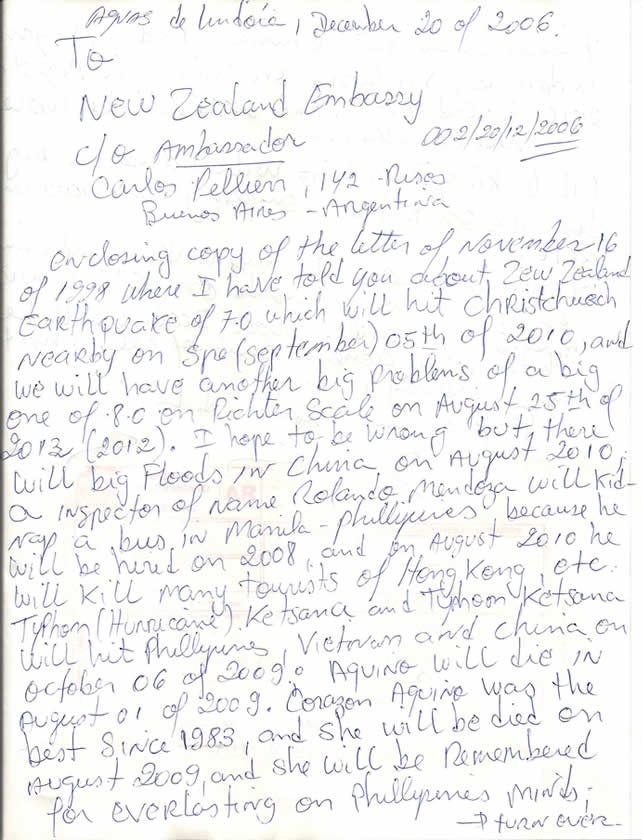 Aguas de Lindóia, December 20 of 2006.
To
New Zealand Embassy
c/o Ambassador
002/20/12/2006
Carlos Pellieri, 142
Buenos Aires - Argentina
enclosing copy of the letter of November 16
of 1998 where I have told you about Zew Zealand
Earthquake of 7.0 which will hit Christchurch
nearby on Spe (september) 05th of 2010, and
we will have another big problems of a big
one of 8.0 on Richter Scale on August 25th of
2012 (2012). I hope to be wrong but, there
will big Floods in China, on August 2010.
a inspector of name Rolando Mendoza will kid-
nap a bus in Manila - Phillypines because he
will be hired on 2008, and on August 2010 he
will kill many tourists of Hong Kong, etc.
Typhon (Hurricane) Ketsana and Typhoon Ketsana
will hit Phillypines, Vietnam and China on
October 06 of 2009. Aquino will die in
August 01 of 2009. Corazon Aquino was the
best Since 1983, and she will be died on
August 2009, and she will be Remembered
for everlasting on Phillypenes minds.
→ turn over.